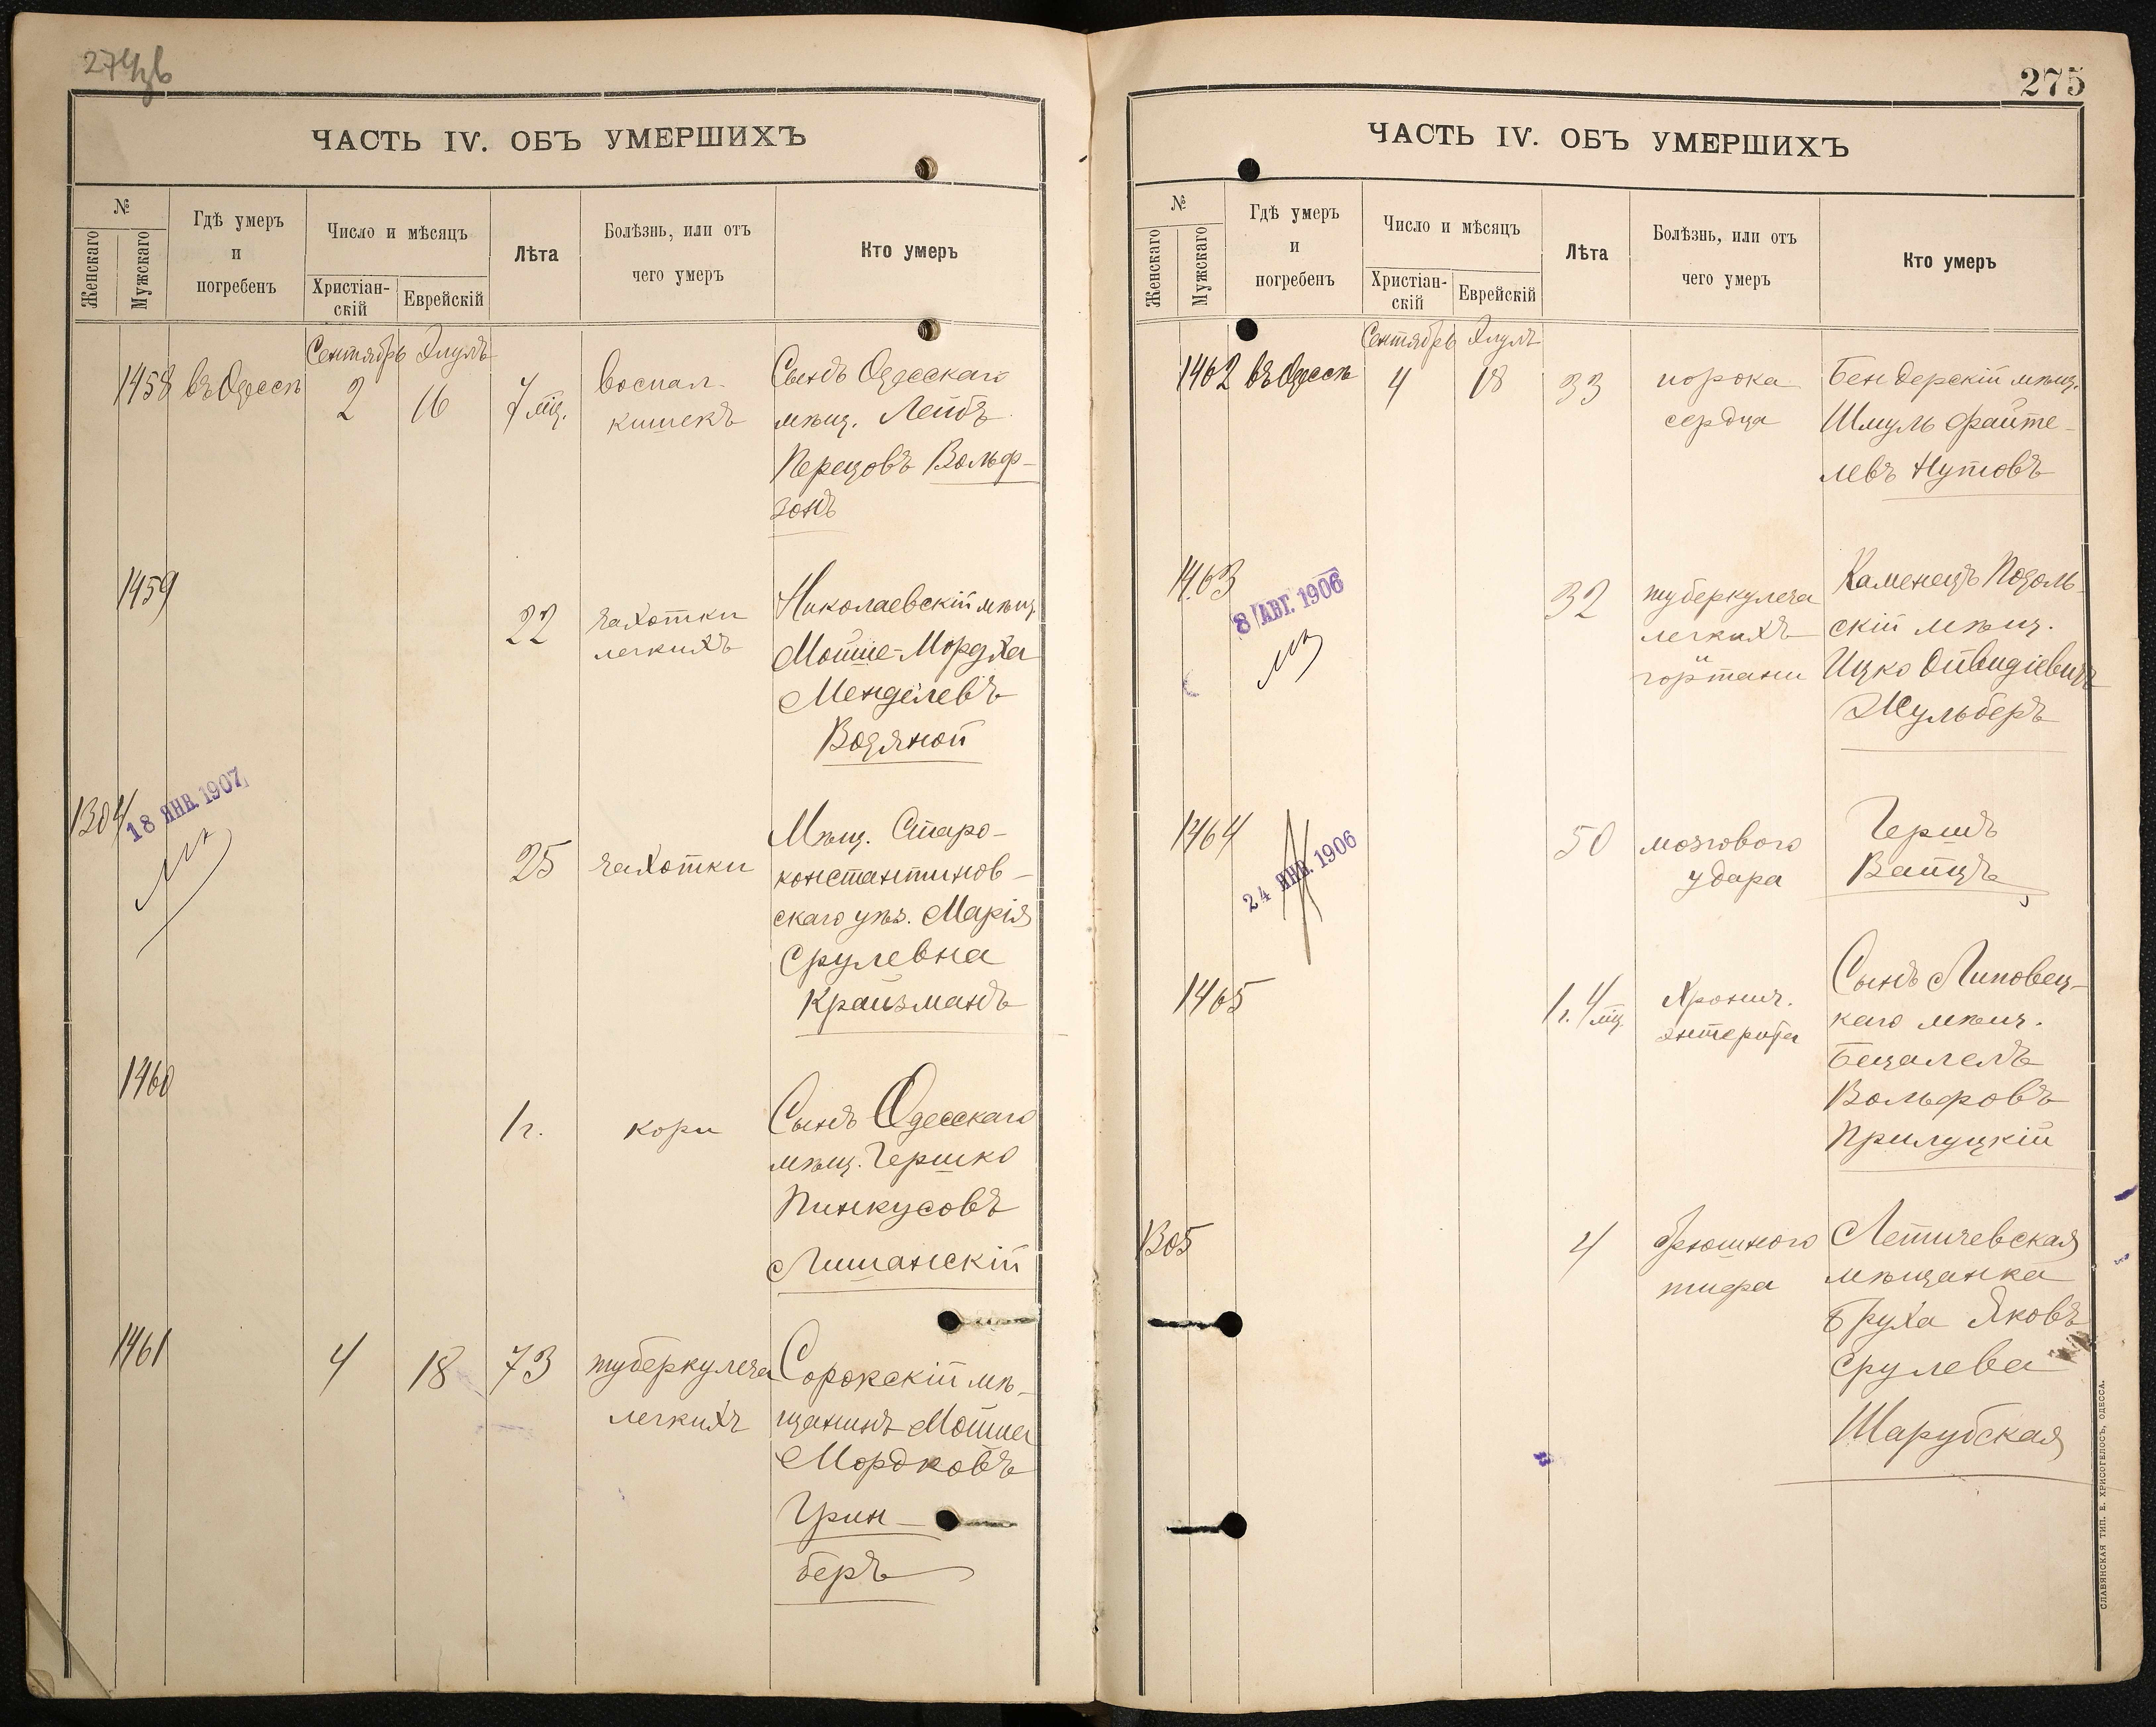 274
ЧАСТЬ IV. ОБЪ УМЕРШИХЪ
№
Женскаго
Мужскаго
Гдѣ умеръ
и
погребенъ
Число и мѣсяцъ
Христіан-
скій
Еврейскій
Лѣта
Болѣзнь, или отъ
чего умеръ
Кто умеръ
Сентябрь Элулъ
1458 въ Одессѣ 2 16 7 мц.
воспал.
кишекъ
Сынъ Одесскаго
мѣщ. Лейбъ
Перецовъ Вольф-
зонъ
1459
22
чахотки
легкихъ
Николаевскій мѣщ.
Мошше-Мордха
Менделевъ
Водяной
1304
18 ЯНВ. 1907
25 чахотки
Мѣщ. Старо-
константинов-
скаго уѣз. Марія
Срулевна
Крайзманъ
1460
1 г. кори
Сынъ Одесскаго
мѣщ. Гершко
Пинкусовъ
Лишанскій
1461 4 18 73
туберкулеза
легкихъ
Сорокскій мѣ-
щанинъ Мошка
Мордковъ
Грин-
беръ
275
ЧАСТЬ IV. ОБЪ УМЕРШИХЪ
№
Женскаго
Мужскаго
Гдѣ умеръ
и
погребенъ
Число и мѣсяцъ
Христіан-
скій
Еврейскій
Лѣта
Болѣзнь, или отъ
чего умеръ
Кто умеръ
Сентябрь Элулъ
1462 въ Одессѣ 4 18 33
порока
сердца
Бендерскій мѣщ.
Шмуль Файте-
левъ Нутовъ
1463
8 АВГ. 1906
32
туберкулеза
легкихъ
и
гортани
Каменецъ Подоль-
скій мѣщ.
Ицко
Жульберъ
1464
24 ЯНВ. 1906
50
мозгового
удара
Гершъ
Вайцъ
1465
1 г. 4 мц.
Хронич.
энтерита
Сынъ Липовец-
каго мѣщ.
Бецалелъ
Вольфовъ
Прилуцкій
1305
4
брюшного
тифа
Летичевская
мѣщанка
Бруха Яковъ
Срулева
Шарубская
СЛАВЯНСКАЯ ТИП. Е. ХРИСОГЕЛОСЪ, ОДЕССА.